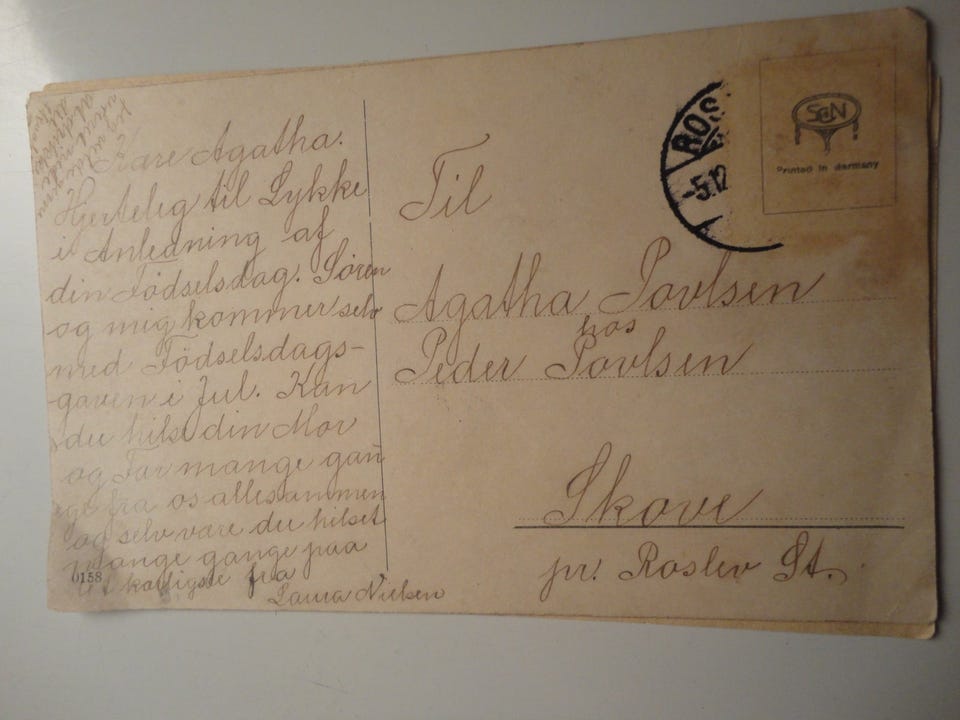 Kære Agatha.
Hjertelig til Lykke
i Anledning af
din Födselsdag. Sören
og mig kommer selv
med Födselsdags-
gaven i Jul. Kan
du hilse din Mor
og Far mange gan
ge fra os allesammen
og selv være du hilset
mange gange paa
det kærligste fra
Laura Nielsen
0158
Til
Agatha Povlsen
hos
Peder Povlsen
Skove
pr. Roslev St.
ROS
-5.12
S&N
Printed in Germany